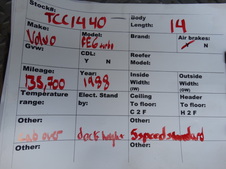 Stock#: TCC1440
Body Length: 14
Make: Volvo
Model: FE6
Brand:
Air brakes: Y N
Gvw:
CDL: Y N
Reefer Model:
Mileage: 135,700
Year: 1998
Inside Width: (IW)
Outside Width: (OW)
Temperature range:
Elect. Stand by:
Ceiling To floor: C 2 F
Header To floor: H 2 F
Other: cab over
Other: dock height
Other: 5 speed standard
Other:
Other:
Other:
Other: